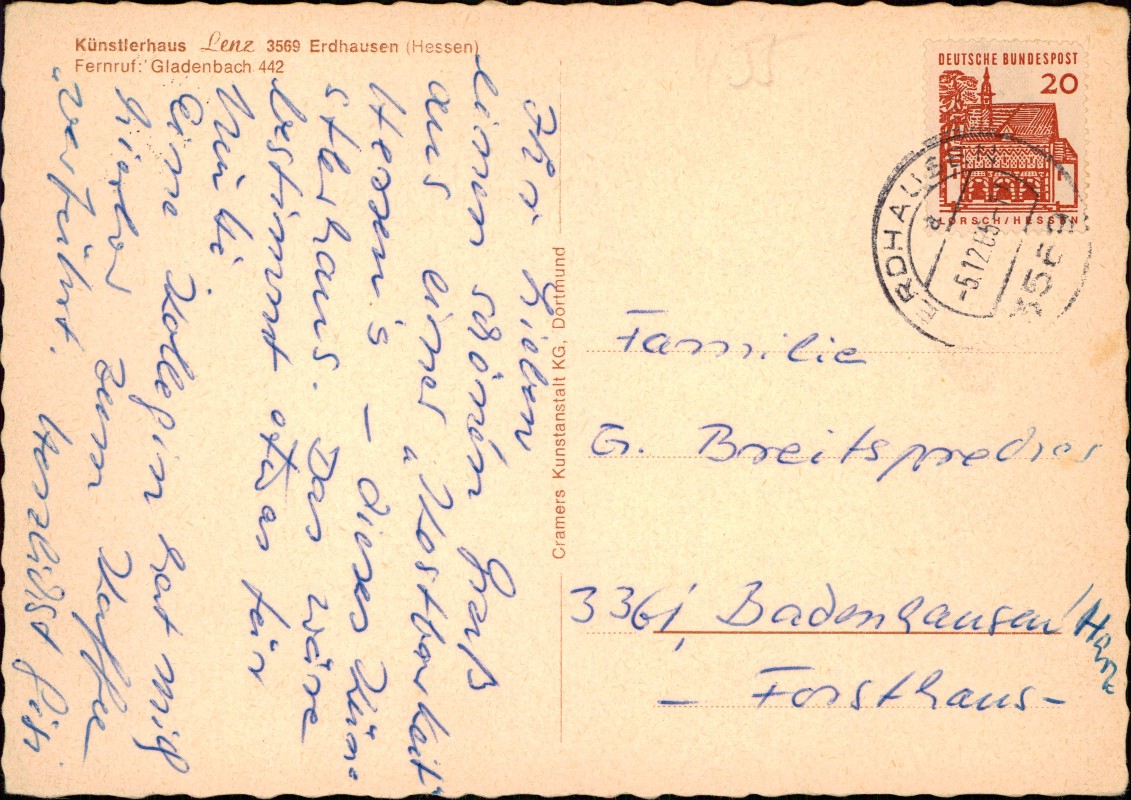 Künstlerhaus Lenz 3569 Erdhausen (Hessen)
Fernruf: Gladenbach 442
Ihr Lieben
einen schönen Gruß
aus einer „Kostbarkeit"
Hessen's – dieses Kün-
stlerhaus. Das wäre
bestimmt etwas für
Mutti
Eine Kollegin hat mich
hierher zum Kaffee
„verführt.
Herzlichst
Cramers Kunstanstalt KG, Dortmund
DEUTSCHE BUNDESPOST
20
LORSCH/HESSEN
ERDHAUSEN
a
-5.12.65
3569
Familie
G. Breitsprecher
3361 Badenhausen/Harz
– Forsthaus –